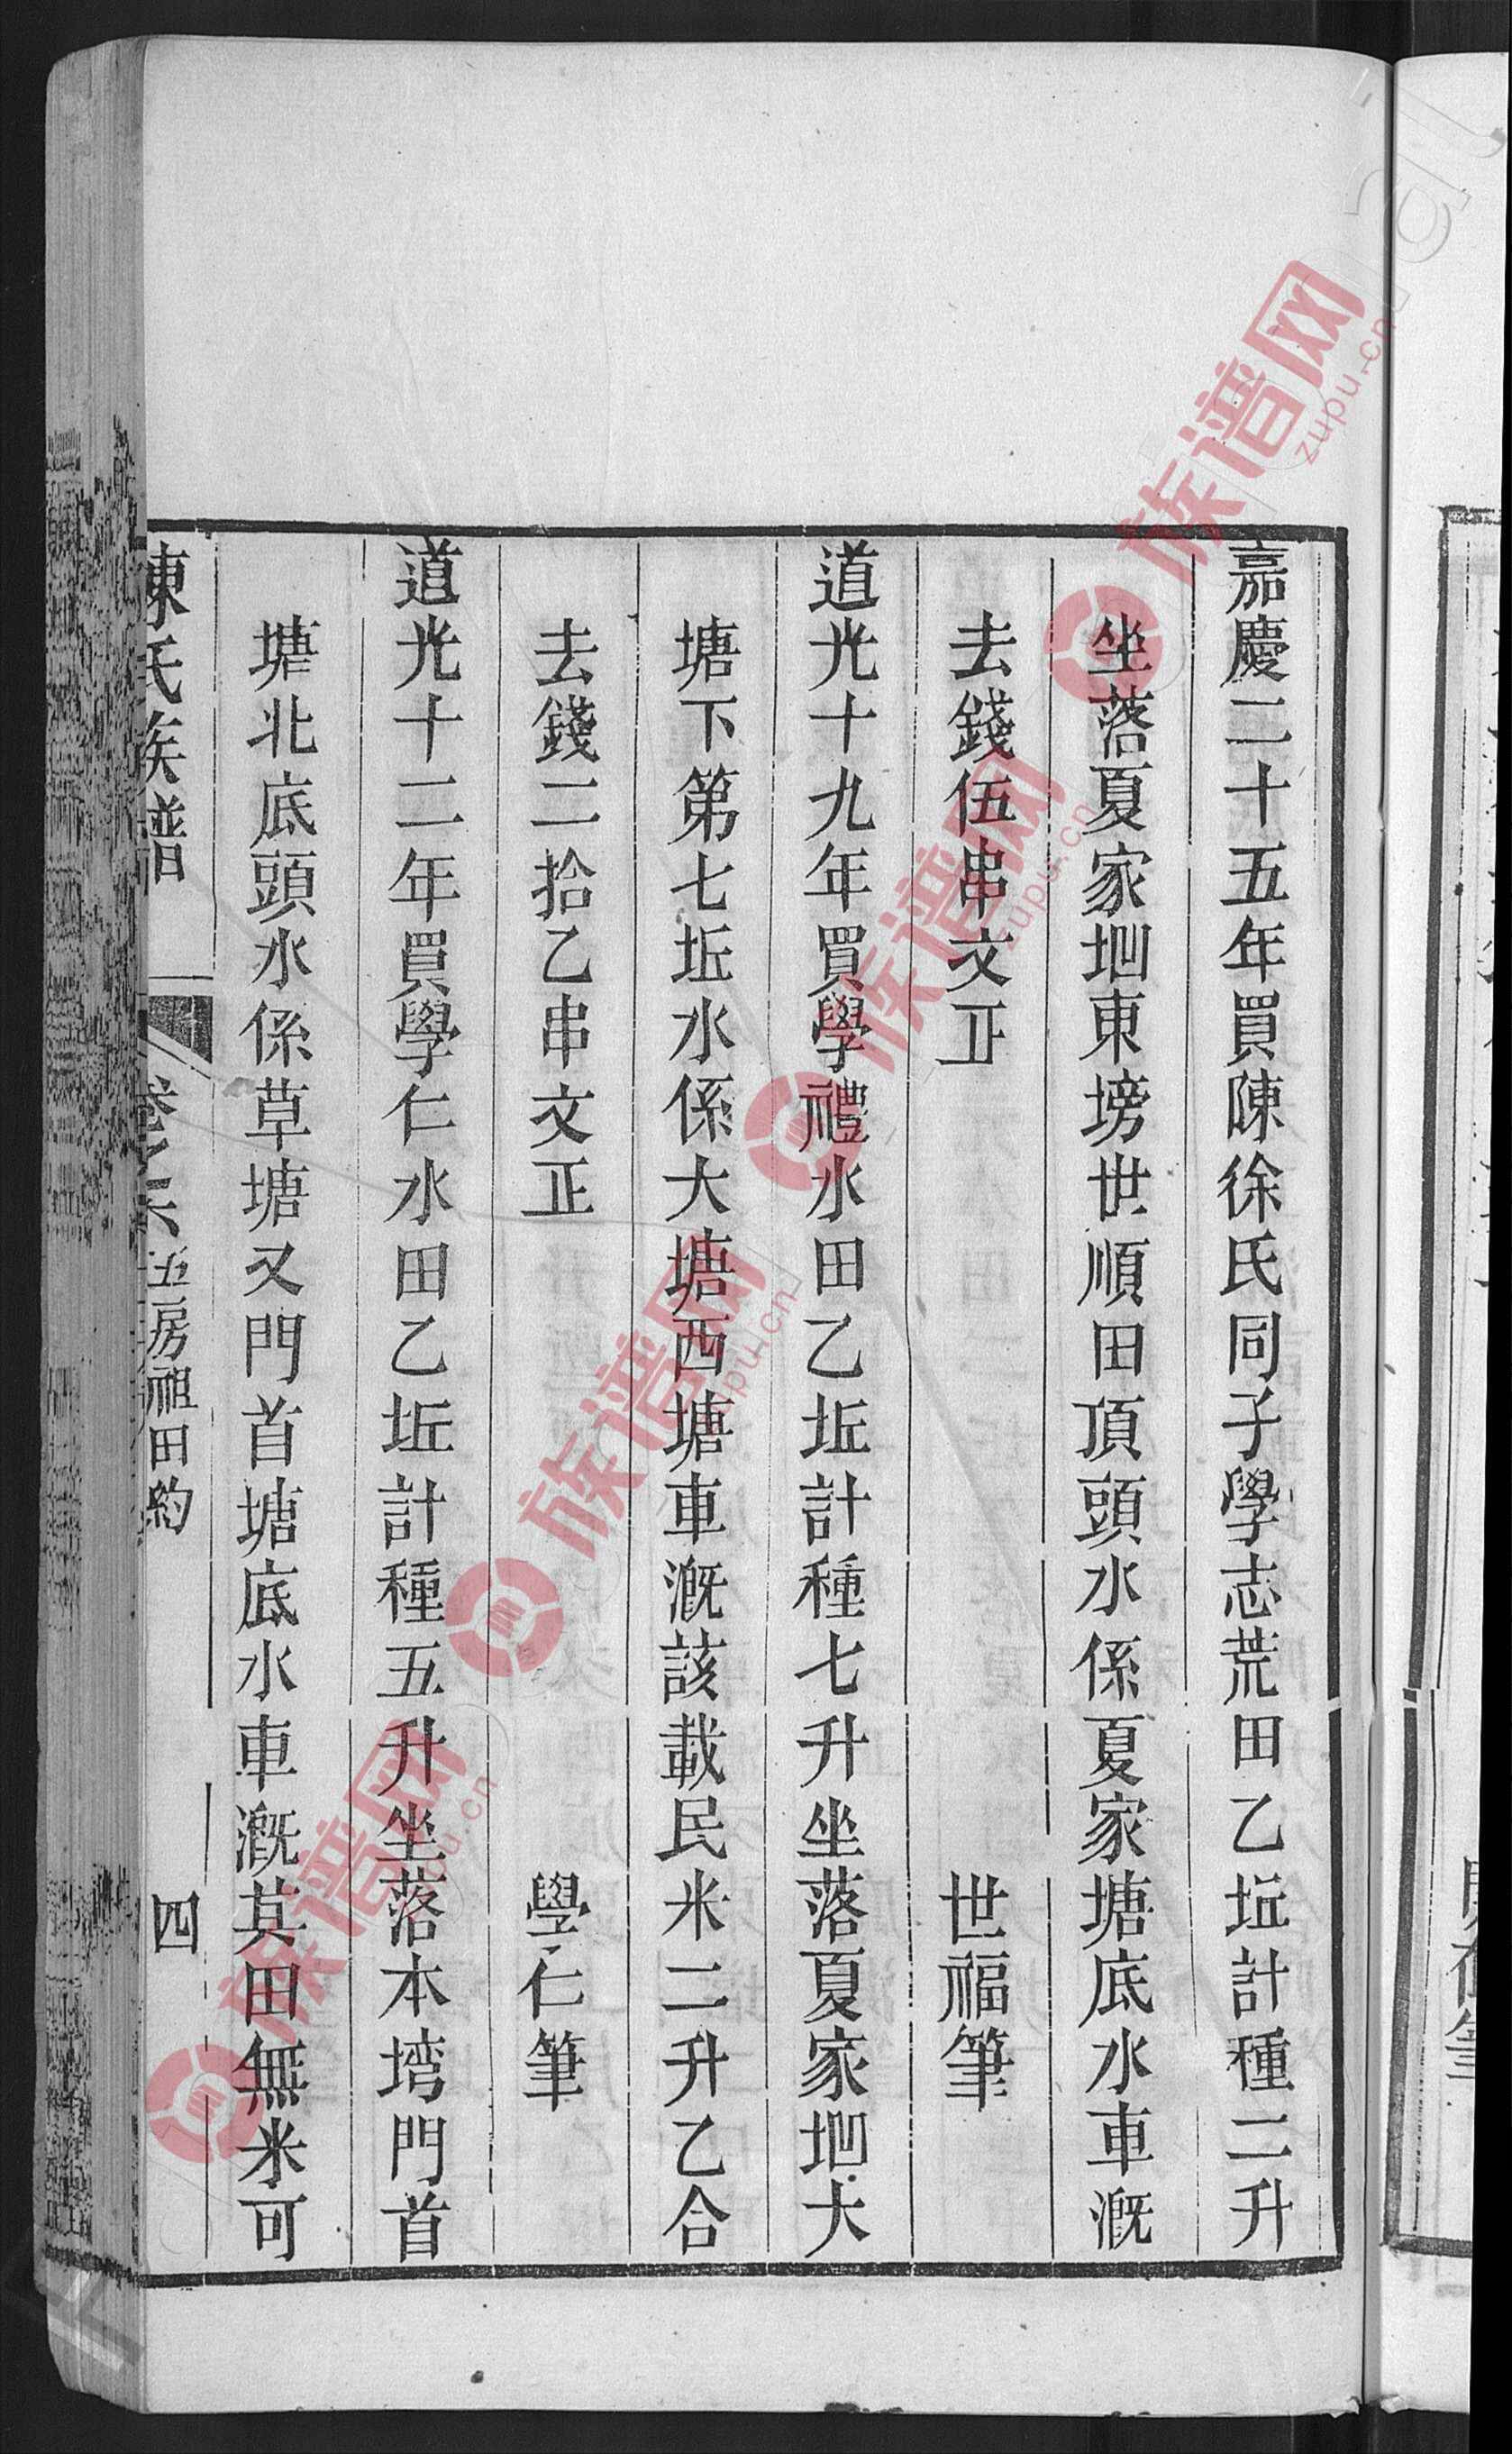 嘉慶二十五年買陳徐氏同子學志荒田乙坵計種二升
坐落夏家垇東塝世順田頂頭水係夏家塘底水車漑
去錢伍串文正　世福筆
道光十九年買學禮水田乙坵計種七升坐落夏家垇大
塘下第七坵水係大塘西塘車漑該載民米二升乙合
去錢二拾乙串文正　學仁筆
道光十二年買學仁水田乙坵計種五升坐落本塆門首
塘北底頭水係草塘又門首塘底水車漑其田無米可
陳氏族譜　卷之六 五房祖田約　四
族谱网
zupu.cn
族谱网
zupu.cn
族谱网
zupu.cn
族谱网
zupu.cn